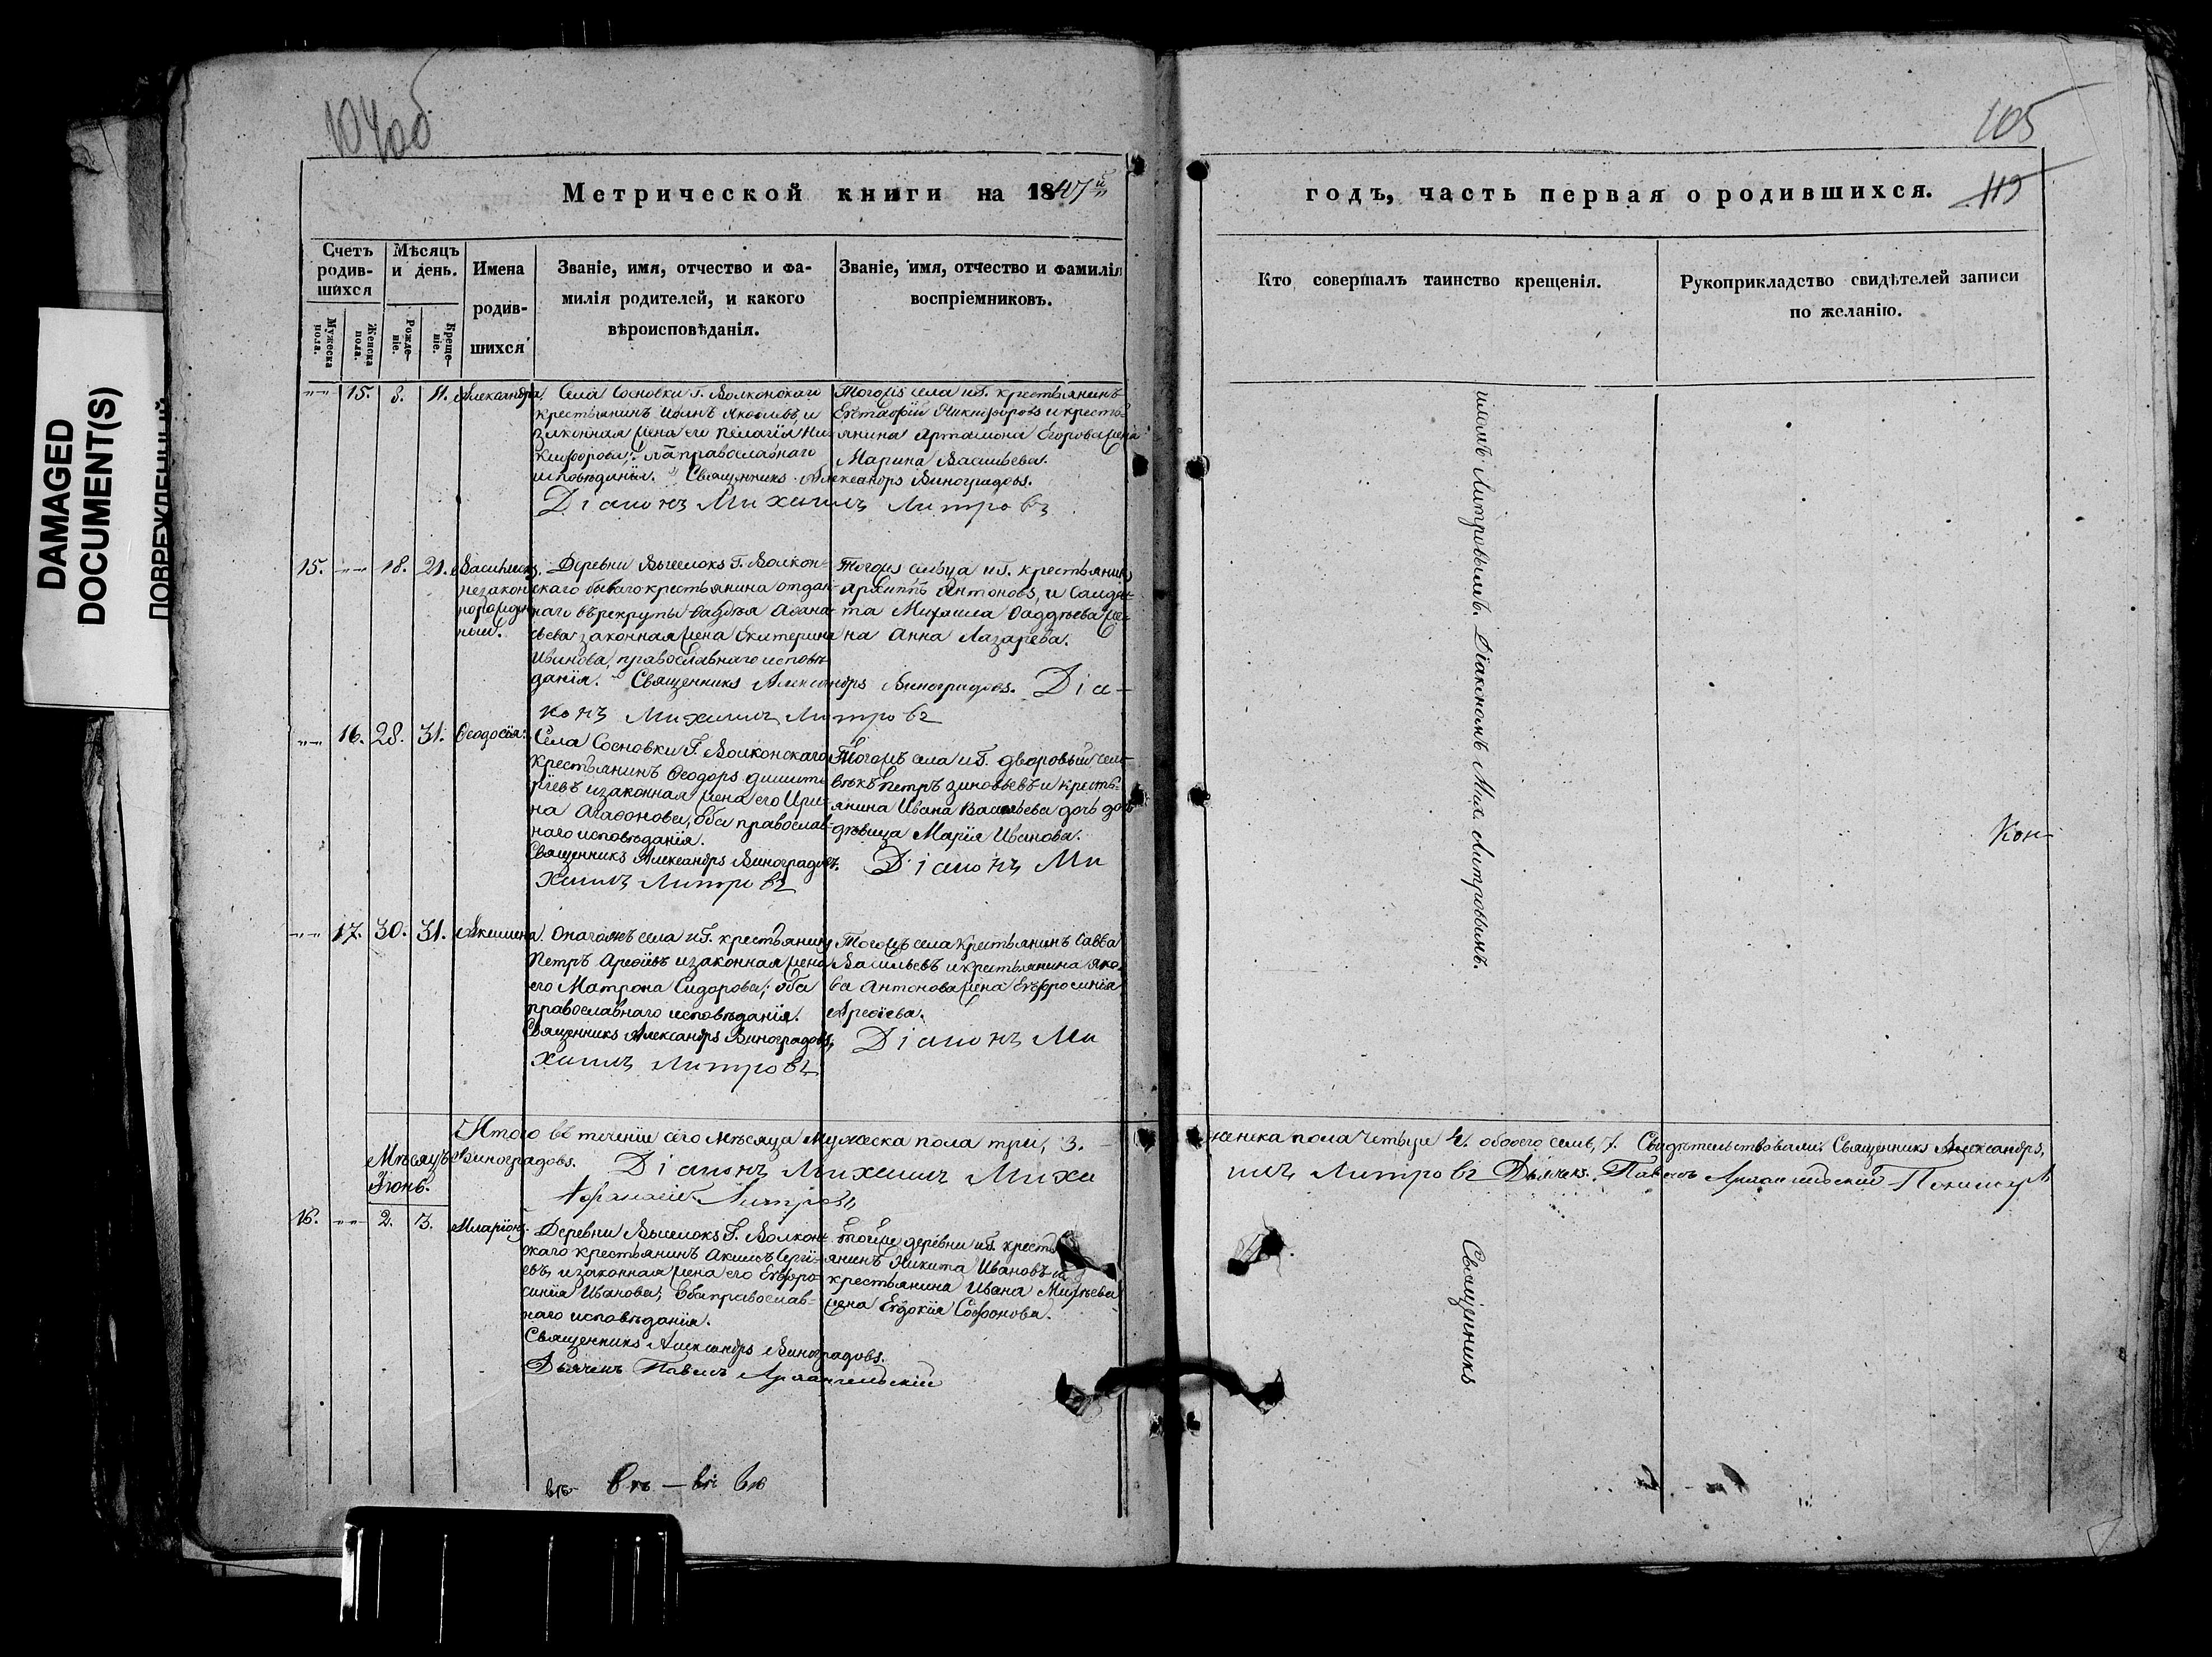 104об
105
119
DAMAGED
DOCUMENT(S)
ПОВРЕЖДЕННЫЙ
Метрической книги на 1847й
годъ, часть первая о родившихся.
Счетъ родив-шихся
Мужеска пола.
Женска пола.
Мѣсяцъ и день.
Рожде-ніе.
Креще-ніе.
Имена родив-шихся
Званіе, имя, отчество и фа-
милія родителей, и какого
вѣроисповѣданія.
Званіе, имя, отчество и фамилія
воспріемниковъ.
Кто совершалъ таинство крещенія.
Рукоприкладство свидѣтелей записи
по желанію.
15. 8. 11. Александра
Села Сосновки Г. Волконскаго
крестьянинъ Иоанъ Яковлевъ, и
законная жена его Пелагія Ни-
кифорова; оба православнаго
исповѣданія. Священникъ Александръ Виноградовъ.
Діаконъ Михаилъ Литровъ
Тогожъ села и Г. крестьянинъ
Евстафій Никифоровъ и кресть-
янина Артамона Егорова жена
Марина Васильева.
15. 18. 21. Василій
незакон
норожден
ный.
Деревни Выселокъ Г. Волкон-
скаго бывшаго крестьянина отдан-
наго въ рекруты Фаддѣя Афана-
сьева законная жена Екатерина
Иванова, православнаго исповѣ-
данія. Священникъ Александръ Виноградовъ. Діа-
конъ Михаилъ Литровъ
Тогожъ сельца и Г. крестьянинъ
Архипъ Антоновъ, и Солда-
та Михаила Фаддѣева же-
на Анна Лазарева.
16. 28. 31. Феодосія.
Села Сосновки Г. Волконскаго
крестьянинъ Феодоръ Димит-
ріевъ и законная жена его Ири-
на Агафонова, оба православ-
наго исповѣданія.
Священникъ Александръ Виноградовъ. Діаконъ Ми
хаилъ Литровъ
Тогожъ села и Г. дворовый чело-
вѣкъ Петръ Зиновьевъ и кресть-
янина Ивана Васильева дочь
дѣвица Марія Иванова.
17. 30. 31. Акилина.
Онагожъ села и Г. крестьянинъ
Петръ Арефьевъ и законная жена
его Матрона Сидорова; оба
православнаго исповѣданія.
Священникъ Александръ Виноградовъ, Діаконъ Ми
хаилъ Литровъ
Тогожъ села крестьянинъ Савва
Васильевъ и крестьянина Яко-
ва Антонова жена Евфросинія
Арефіева.
Итого въ теченіе сего мѣсяца мужеска пола три, 3.
женска пола четыре 4. обоего семь, 7. Свидѣтельствовали: Священникъ Александръ,
Виноградовъ. Діаконъ Михаилъ
Литровъ Дьячекъ. Павелъ Архангельскій
Афанасій Литровъ
Мѣсяцъ
Іюнь.
16. 2. 3. Иларіонъ
Деревни Выселокъ Г. Волкон-
скаго крестьянинъ Акимъ Сергі-
евъ, и законная жена его Евфро-
синія Иванова, Оба православ-
наго исповѣданія.
Священникъ Александръ Виноградовъ.
Дьячекъ Павелъ Архангельскій
Тойже деревни и Г. кресть-
янинъ Никита Ивановъ и
крестьянина Ивана
жена Евдокія Софонова.
иломъ Литровымъ. Діакономъ Мих. Литровымъ.
Кон-
Священникъ
въ въ — въ въ